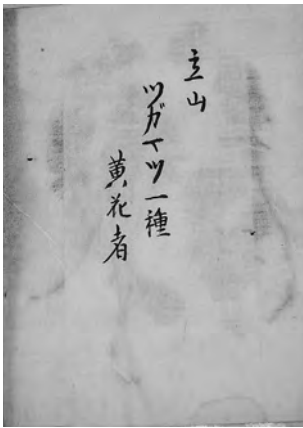 立山
ツガマツ一種
黄花者